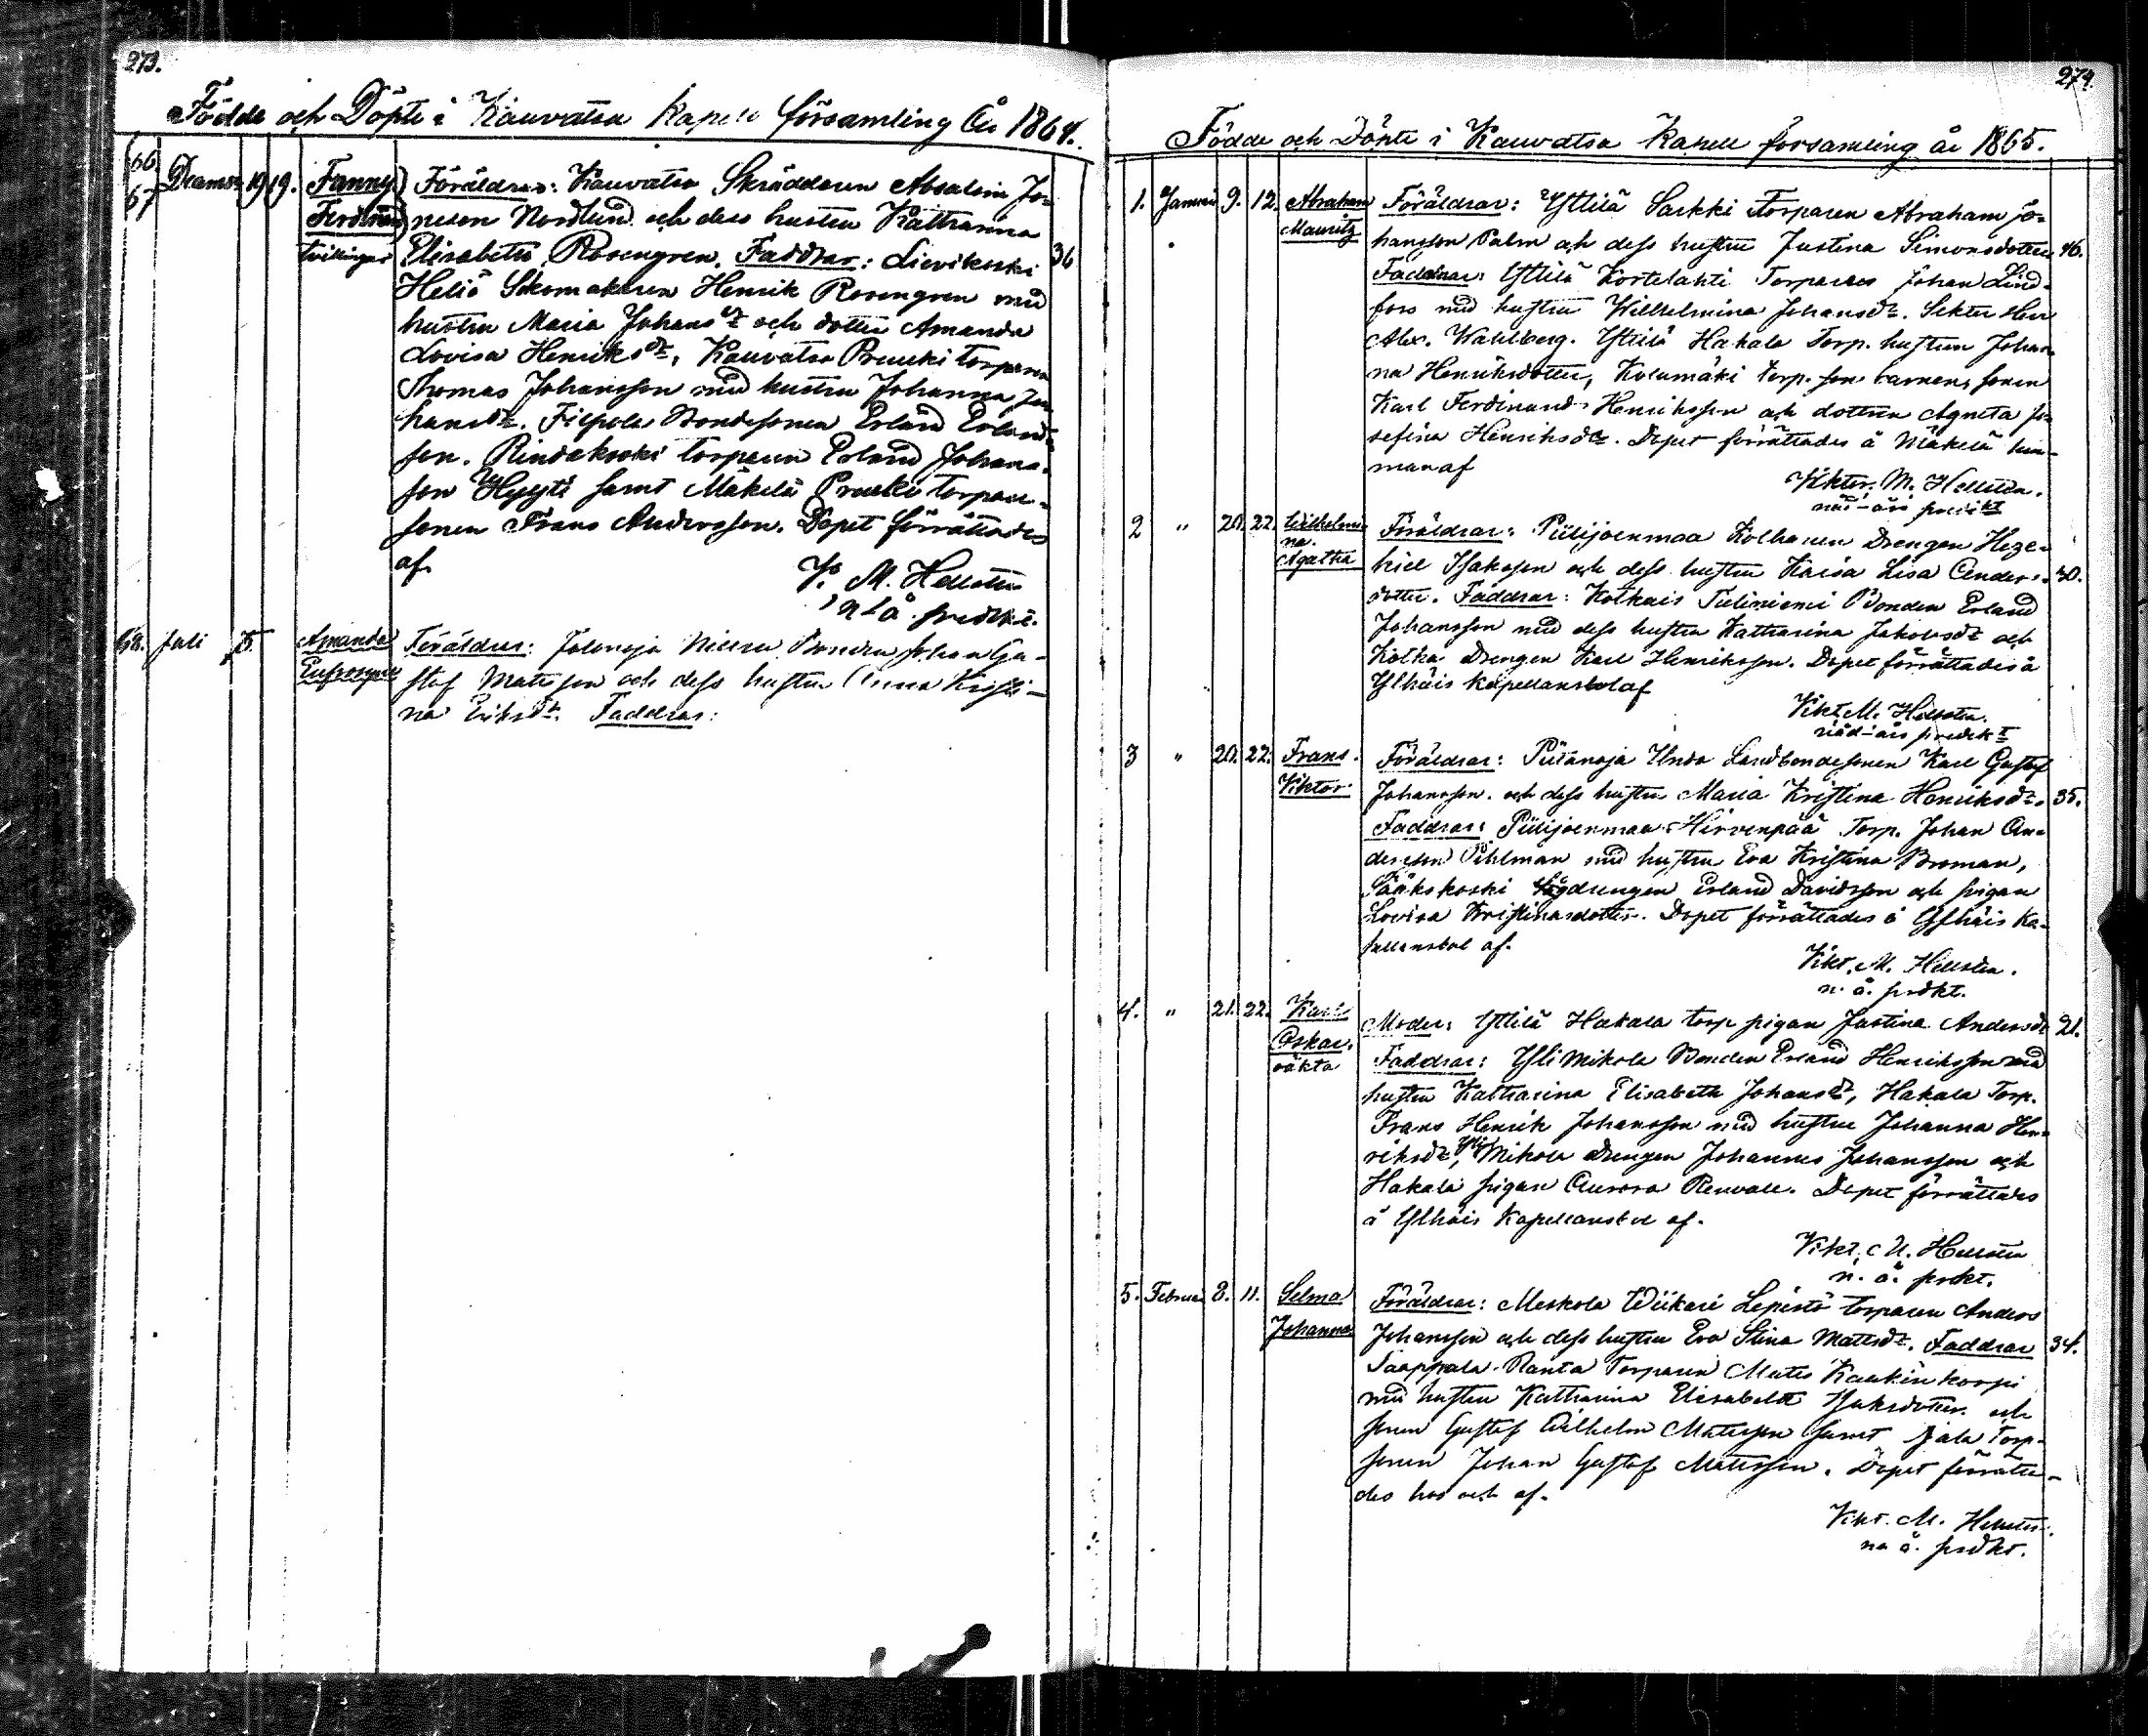 273.
Födde och Döpte i Kauvatsa Kapell församling År 1864.
66 67 Decemb. 19 19. Fanny Föräldrar: Kauvatsa Skräddaren Absalom Jo-
Ferdinand nesson Nordlund och dess hustru Katharina
tvillingar Elisabeth Rosengren. Faddrar: Lievikoski 36
Heliö Skomakaren Henrik Rosengren med
hustru Maria Johansdr och dotter Amanda
Lovisa Henriksdr, Kauvatsa Pruuki torparen
Thomas Johansson med hustru Johanna Jo-
hansdr. Filpola Bondesonen Erland Erland-
son. Rindakoski torparen Erland Johans-
son Hyyti samt Mäkelä Pruuki torpare-
sonen Frans Andersson. Dopet förrättades
af. V. M. Hellstén
n å predkt.
68. Juli 5. Amanda Föräldrar: Jalonoja Bonden Johan Gu-
Eufrosyne staf Matsson och dess hustru Anna Kristi-
na Eriksdr. Faddrar:
274.
Födde och Döpte i Kauvatsa Kapell församling år 1865.
1. Januari 9. 12. Abraham Föräldrar: Yttilä Sarkki Torparen Abraham Jo-
Mauritz hansson Palm och dess hustru Justina Simonsdotter 46.
Faddrar: Yttilä Kortelahti Torparen Johan Lind-
fors med hustru Wilhelmina Johansdr. Herr
Alex. Wahlberg. Yttilä Hakala Torp. hustrun Johan-
na Henriksdotter, Kolumäki torp. son barnens sonen
Karl Ferdinand Henriksson och dottren Agneta Jo-
sefina Henriksdr. Dopet förrättades å Mäkelä hem-
man af
Viktor. M. Hellstén.
nåd-års predikt
2 " 20. 22. Wilhelmi- Föräldrar: Piilijoenmaa Kolhanen Drengen Heze-
na. Agatha kiel Isaksson och dess hustru Kaisa Lisa Anders- 30.
dotter. Faddrar: Kotkais Tuliniemi Bonden Erland
Johansson med dess hustru Katharina Jakobsdr och
Kotka Drengen Karl Henriksson. Dopet förrättades å
Ylhäis Kapellansbol af
Vikt. M. Hellstén.
nåd-års predikt
3 " 20. 22. Frans Föräldrar: Piiranoja Undo Landbondesonen Karl Gustaf
Viktor. Johansson. och dess hustru Maria Kristina Henriksdr. 35.
Faddrar: Piilijoenmaa Hirvenpää Torp. Johan An-
dersson Pihlman med hustru Eva Kristina Broman,
Sääkskoski Sågdrengen Erland Davidsson och pigan
Lovisa Kristinasdotter. Dopet förrättades å Ylhäis Ka-
pellansbol af.
Vikt. M. Hellstén.
n. å. prdkt.
4. " 21. 22. Karl Moder: Yttilä Hakala torp pigan Justina Andersdr 21.
Oskar. Faddrar: Yli Mikola Bonden Erland Henriksson med
oäkta hustru Katharina Elisabeth Johansdr, Hakala Torp.
Frans Henrik Johansson med hustru Johanna Hen-
riksdr, Yli Mikola drengen Johannes Johansson och
Hakala pigan Aurora Renvall. Dopet förrättades
å Ylhäis Kapellansbol af.
Vikt. M. Hellstén
n. å. prdkt.
5. Februari 8. 11. Selma Föräldrar: Meskola Wiikari Lepistö torparen Anders
Johanna Johansson och dess hustru Eva Stina Mattsdr. Faddrar 34.
Saappala Ranta Torparen Matts Kaukinkorpi
med hustru Katharina Elisabeth Isaksdotter och
sonen Gustaf Wilhelm Matsson samt Jala Torp-
sonen Johan Gustaf Matsson. Dopet förrätta-
des hos och af.
Vikt. M. Hellstén.
n å. prdkt.